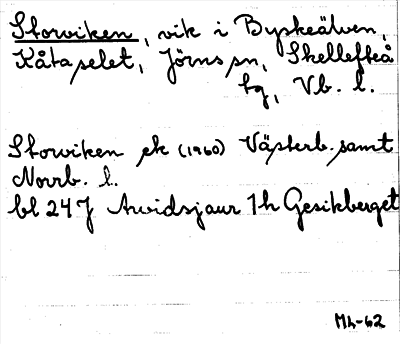 Storviken, vik i Byskeälven,
Kåtaselet, Jörns sn, Skellefteå
tg, Vb. l.
Storviken ek (1960) Västerb. samt
Norrb. l.
bl 24 J Arvidsjaur 1h Gesikberget
ML-62